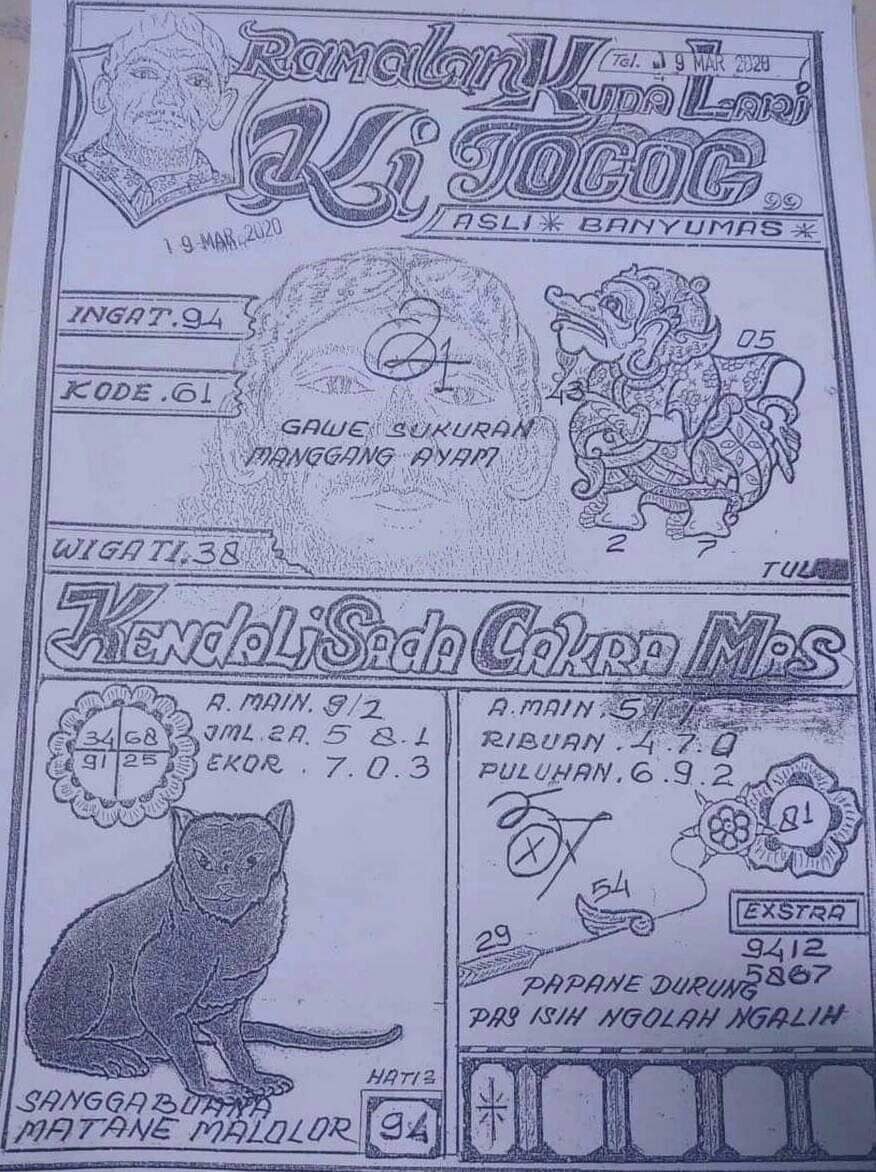 Ramalan Kuda Lari
Tgl. 19 MAR 2020
Ki TOGOG 99
ASLI * BANYUMAS *
19 MAR 2020
INGAT.94
KODE.61
GAWE SUKURAN
MANGGANG AYAM
WIGATI.38
05
43
2 7
KENDALiSADA CAKRA MAS
34 68
91 25
A. MAIN. 9/2
JML.2A. 5 8.1
EKOR . 7.0.3
SANGGABUANA
MATANE MALOLOR
HATI2
94
A.MAIN. 5
RIBUAN .4.7.0
PULUHAN.6.9.2
81
54
29
EXSTRA
9412
5867
PAPANE DURUNG
PAS ISIH NGOLAH NGALIH